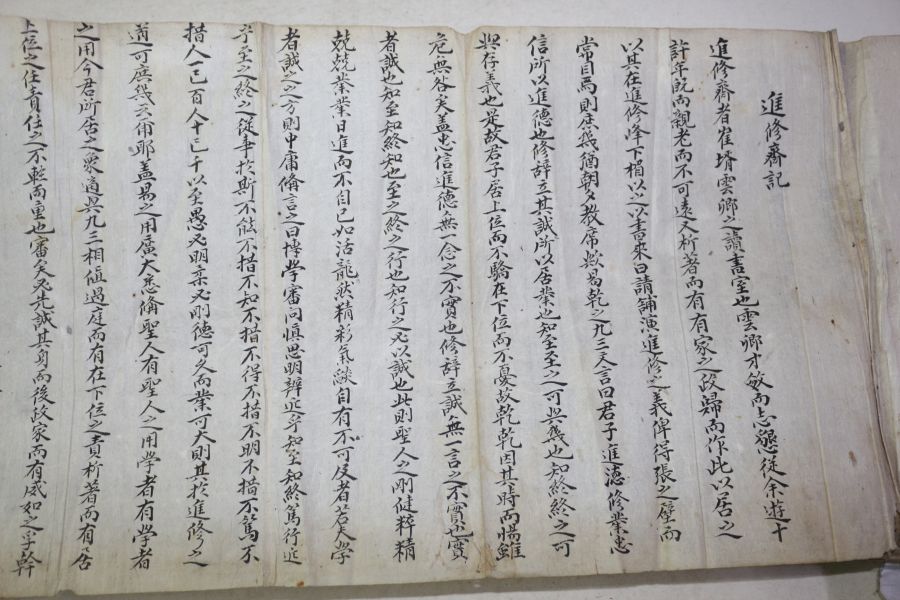 進修齋記
進修齋者崔壻雲卿之讀書室也雲卿才敏而志懇從余遊十
許年旣而親老而不可遠又析著而有有家之政歸而作此以居之
以其在進修峰下楣以之以書來曰請鋪演進修之義俾得張之壁而
常目焉則庶幾猶朝夕敎席歟易乾之九三文言曰君子進德修業忠
信所以進德也修辭立其誠所以居業也知至至之可與幾也知終終之可
與存義也是故君子居上位而不驕在下位而不憂故乾乾因其時而惕雖
危無咎矣盖忠信進德無一念之不實也修辭立誠無一言之不實也實
者誠也知至知終知也至之終之行也知行之必以誠也此則聖人之剛健粹精
兢兢業業日進而不自已如活龍然精彩氣燄自有不可及者若夫學
者誠之之方則中庸備言之曰博學審問愼思明辨近乎知至知終篤行近
乎至之終之從事於斯不能不措不知不措不得不措不明不措不篤不
措人一己百人十己千以至愚必明柔必剛德可久而業可大則其於進修之
道可庶幾云爾耶盖易之用廣大悉備聖人有聖人之用學者有學者
之用今君所居之象適與九三相値過庭而有在下位之責析著而有居
上位之任責任之不輕而重也審矣必先誠其身而後政家而有威如之孚幹